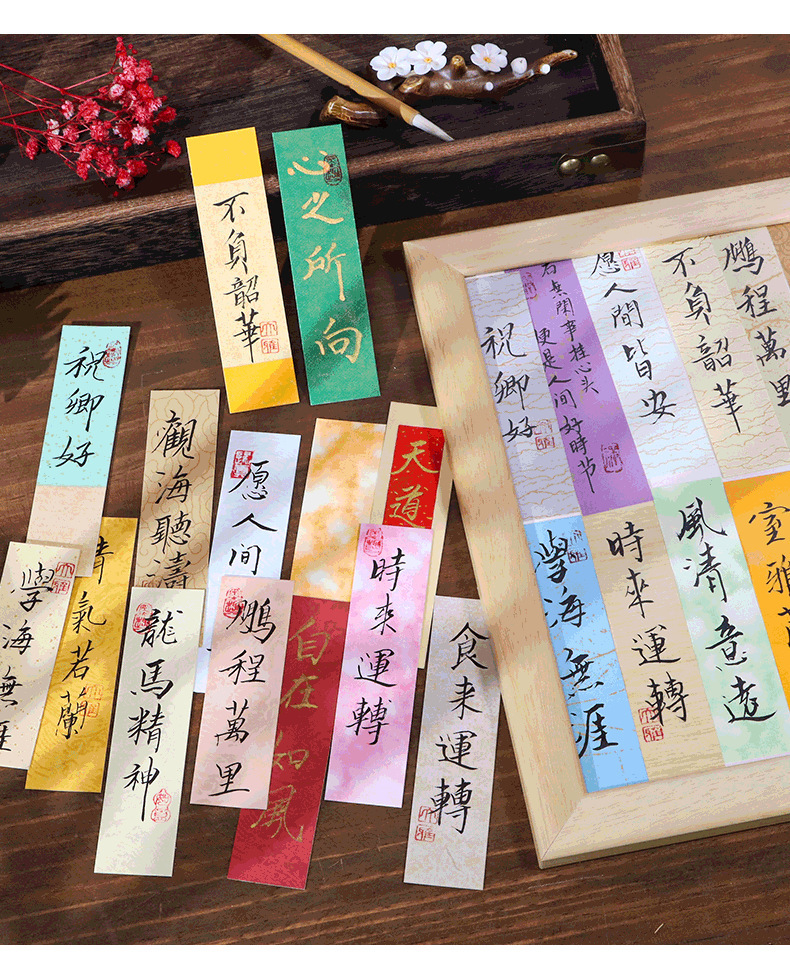 不負韶華
心之所向
祝卿好
觀海聽濤
愿人間
天道
學海無涯
清氣若蘭
龍馬精神
鵬程萬里
自在如風
時来運轉
食来運轉
祝卿好
若無閑事挂心头
更是人间好時节
愿人間皆安
不負韶華
鵬程萬里
學海無涯
時來運轉
風清意遠
室雅